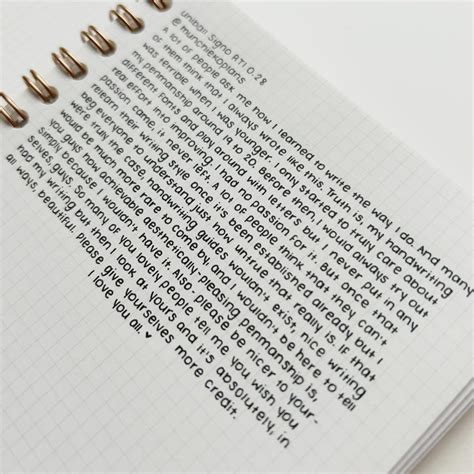 uniball Signo RT1 0.28
A lot of people ask me how I learned to write the way I do. And many
of them think that I always wrote like this. Truth is, my handwriting
was terrible when I was younger. I only started to truly care about
my penmanship around 19 to 20. Before then, I would always try out
different fonts and play around with letters but I never put in any
real effort into improving; I had no passion for it. But once that
passion came, it never left. A lot of people think that they can't
relearn their writing style once it's been established already but I
beg everyone to understand just how untrue that really is. If that
were the case, handwriting guides wouldn't exist, nice writing
much more rare to come by and I wouldn't be here to tell
you guys how achievable aesthetically-pleasing penmanship is,
simply because I wouldn't have it. Also, please be nicer to your-
selves, guys. So many of you lovely people tell me you wish you
had my writing but then I look at yours and it's absolutely, in
all ways, beautiful. Please give yourselves more credit.
I love you all ♥